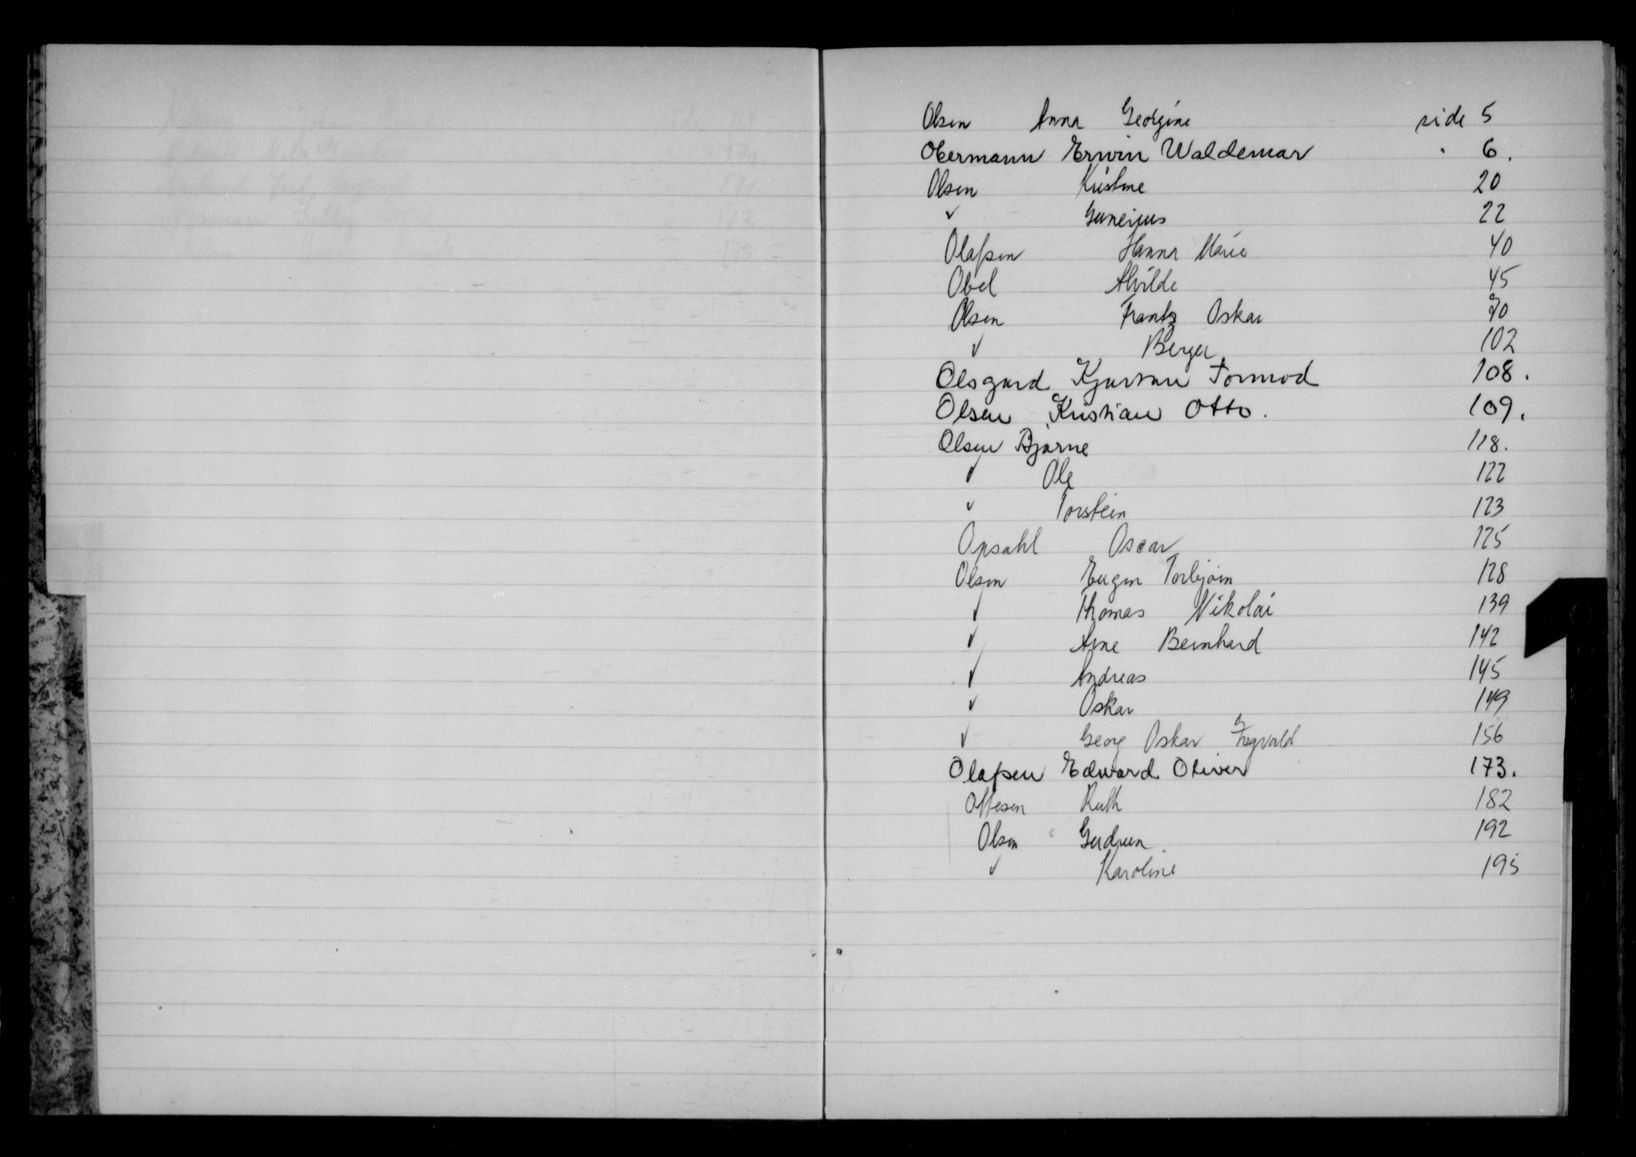 Olsen Anna Georgine side 5
Obermann Erwin Waldemar " 6.
Olsen Kristine 20
" Gunerius 22
Olafsen Hanna Marie 40
Obel Alvilde 45
Olsen Frantz Oskar 70
" Berger 102
Olsgard Kjartan Tormod 108.
Olsen Kristian Otto. 109.
Olsen Bjarne 118.
" Ole 122
" Torstein 123
Opsahl Oscar 125
Olsen Eugen Torbjørn 128
" Thomas Nikolai 139
" Arne Bernhard 142
" Andreas 145
" Oskar 149
" Georg Oskar 156
Olafsen Edward Oliver 173.
Ottesen Ruth 182
Olsen Gudrun 192
" Karoline 195